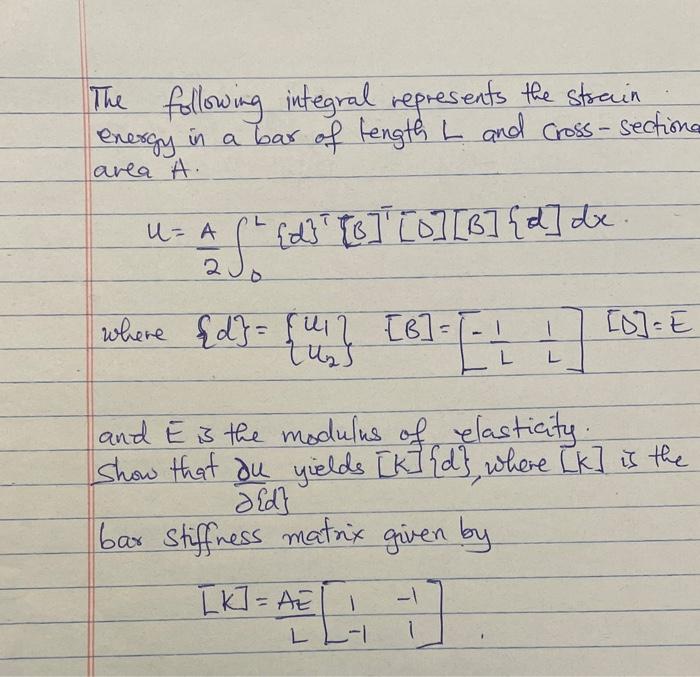 The following integral represents the strain
energy in a bar of length L and cross-sectiona
area A.
U = A/2 ∫₀ᴸ {d}ᵀ [B]ᵀ [D][B]{d] dx.
where {d} = {u₁ u₂} [B] = [-1/L 1/L] [D] = E
and E is the modulus of elasticity.
Show that ∂u/∂{d} yields [K]{d}, where [K] is the
bar stiffness matrix given by
[K] = AE/L [1 -1 -1 1].